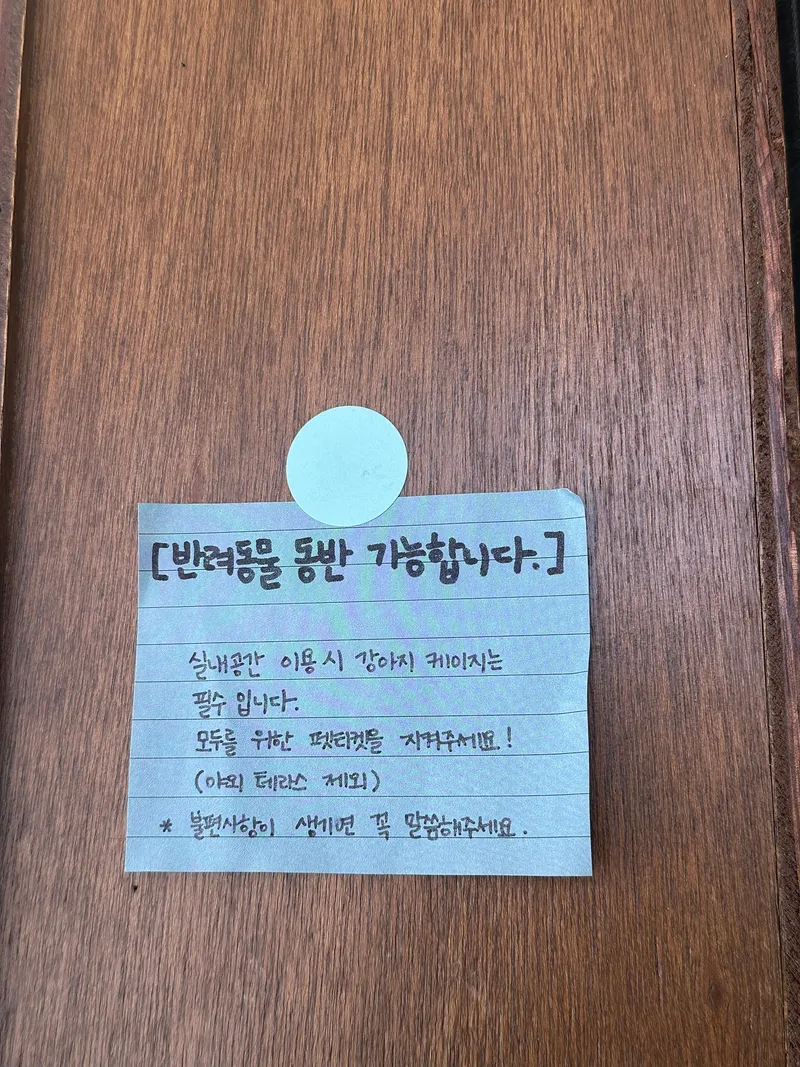 [반려동물 동반 가능합니다.]
실내공간 이용 시 강아지 케이지는
필수 입니다.
모두를 위한 펫티켓을 지켜주세요!
(야외 테라스 제외)
* 불편사항이 생기면 꼭 말씀해주세요.